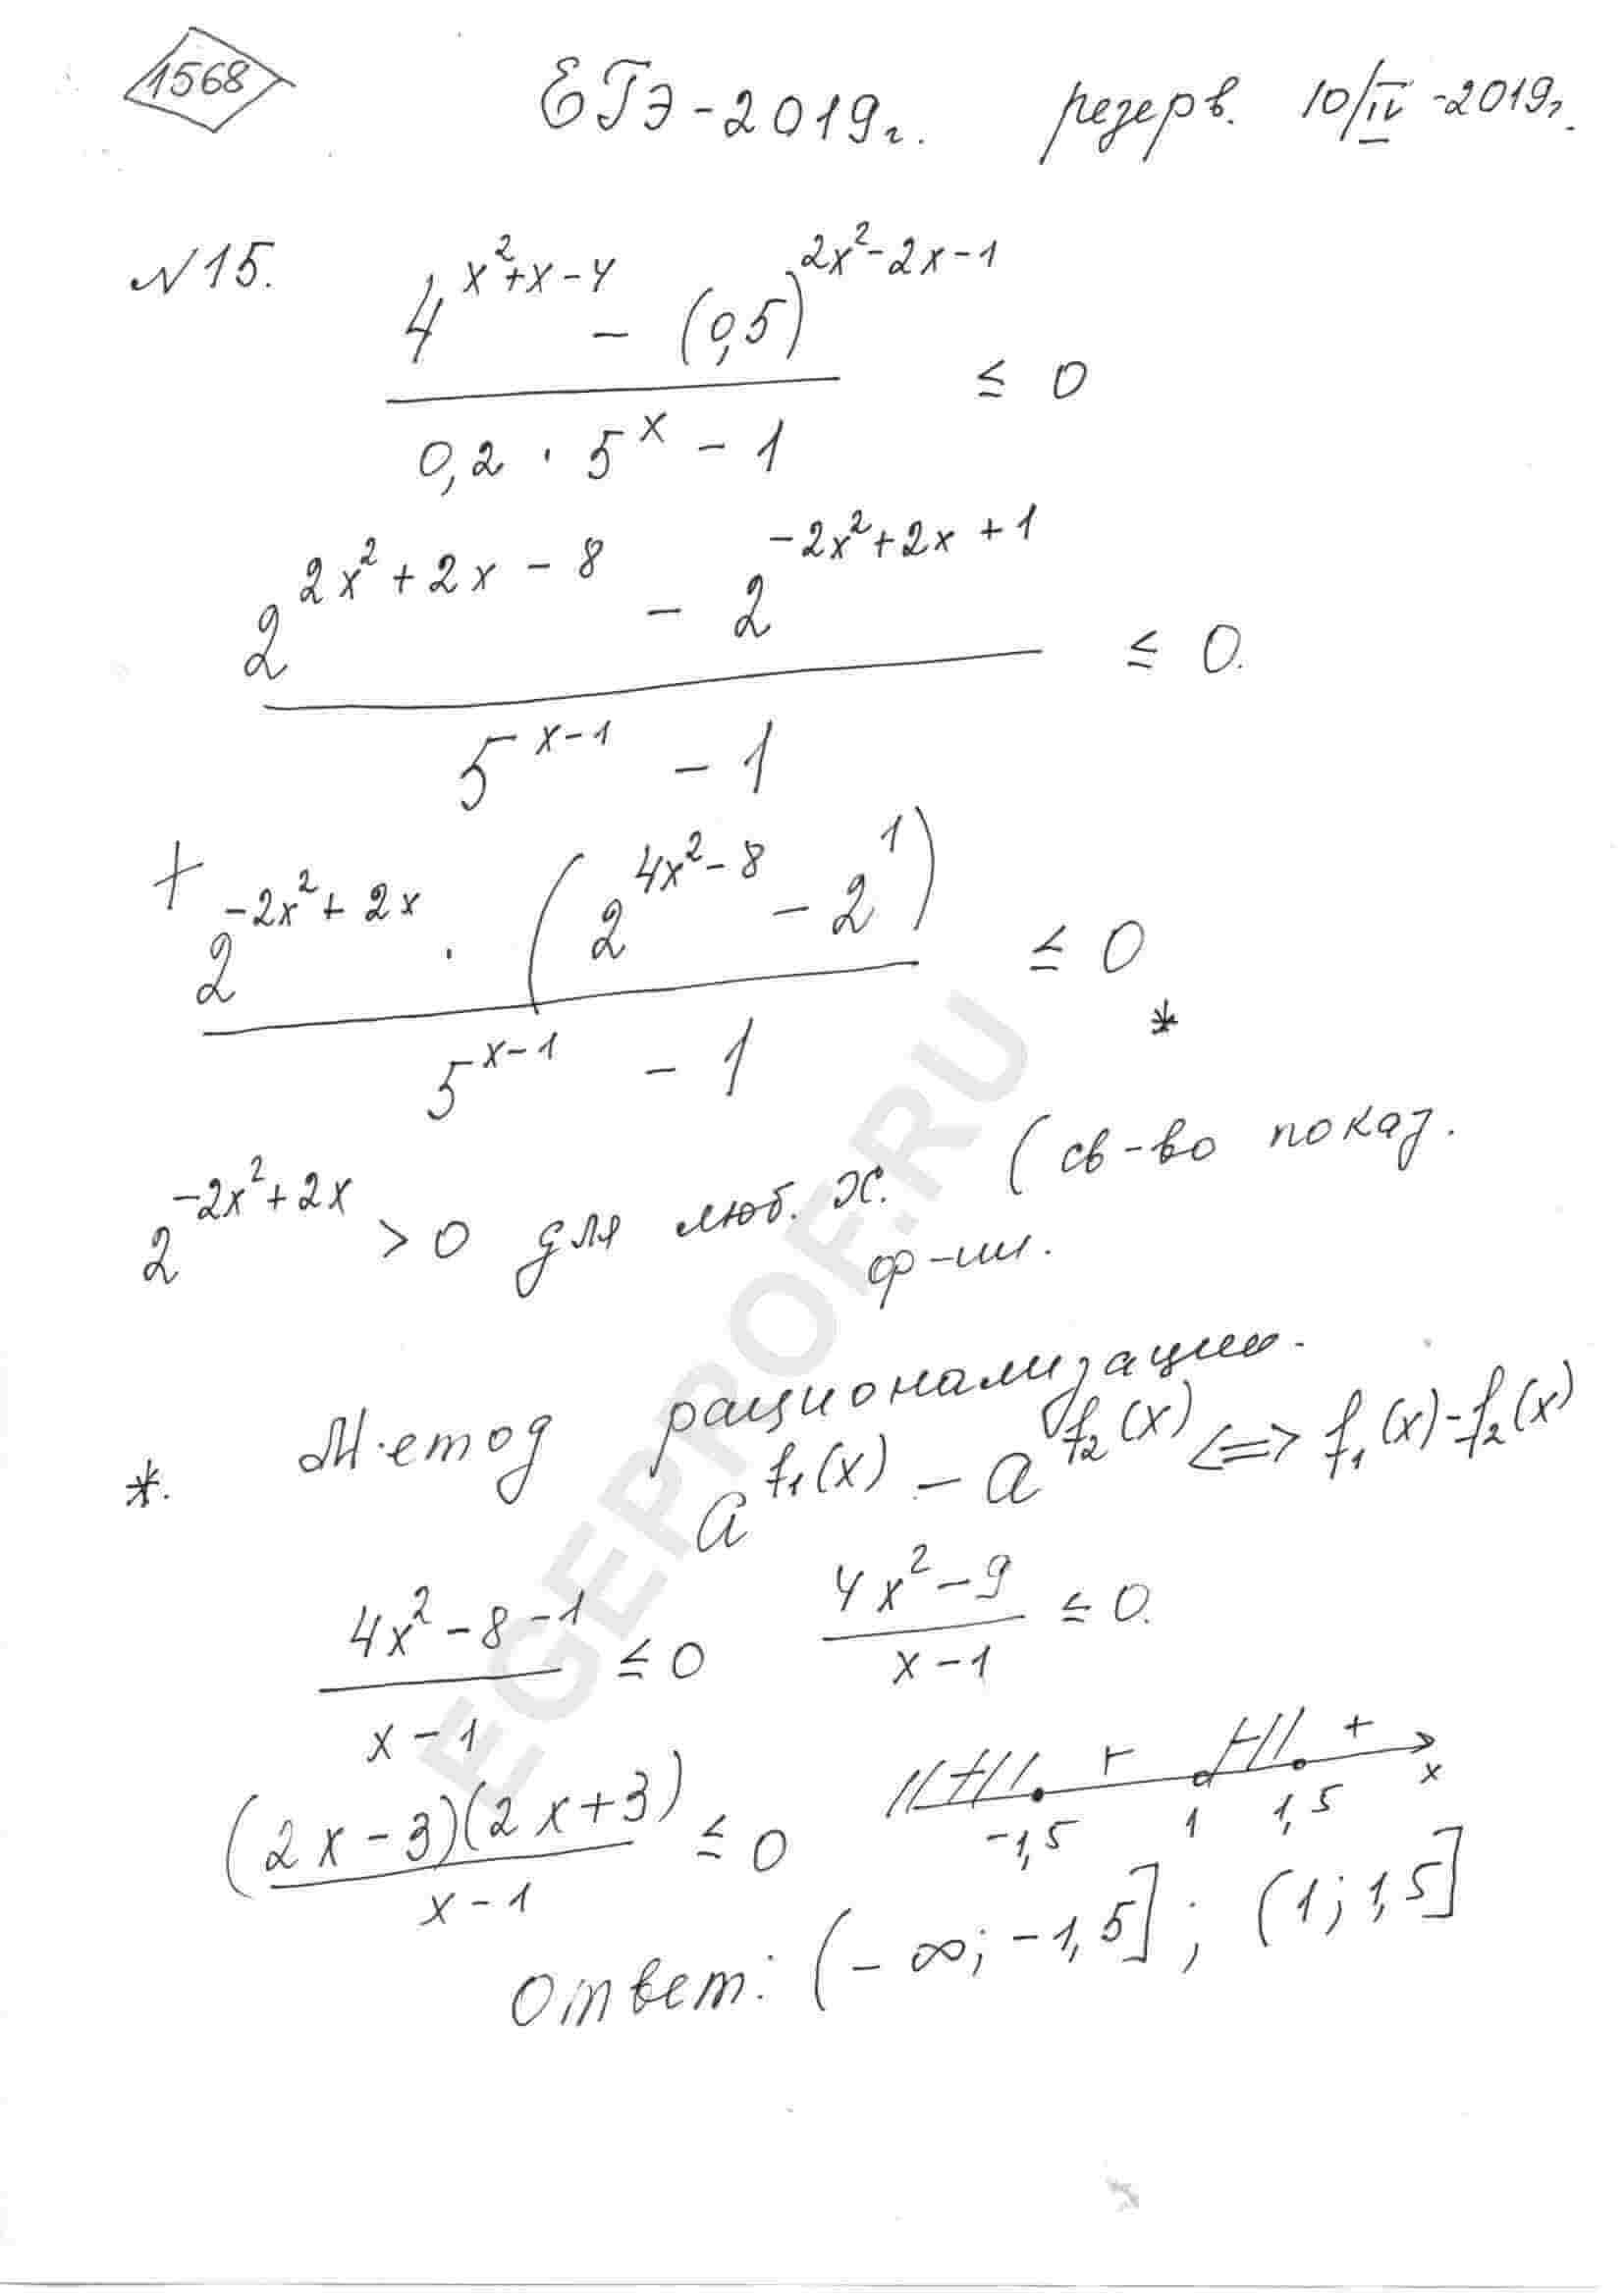 1568
ЕГЭ-2019г. резерв. 10/IV-2019г.
№15. (4^(x²+x-4) - (0,5)^(2x²-2x-1)) / (0,2 · 5^x - 1) ≤ 0
(2^(2x²+2x-8) - 2^(-2x²+2x+1)) / (5^(x-1) - 1) ≤ 0.
+ (2^(-2x²+2x) · (2^(4x²-8) - 2^1)) / (5^(x-1) - 1) ≤ 0 *
2^(-2x²+2x) > 0 для люб. x. (св-во показ.
ф-ии.
*. Метод рационализации.
a^(f₁(x)) - a^(f₂(x)) <=> f₁(x)-f₂(x)
(4x²-8-1) / (x-1) ≤ 0 (4x²-9) / (x-1) ≤ 0.
(2x-3)(2x+3) / (x-1) ≤ 0
+ - + x
-1,5 1 1,5
Ответ: (-∞; -1,5]; (1; 1,5]
EGEPROF.RU